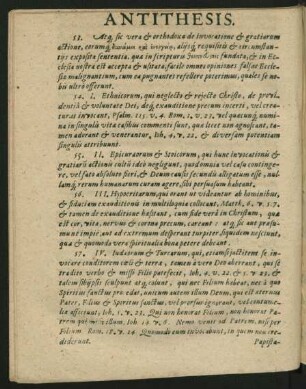 ANTITHESIS.
13. Atq. sic vera & orthodoxa de invocatione & gratiarum
actione, earumq. aliisq. requisitis & circumstan-
tiis exposita sententia, qua in scripturis fundata, & in Ec-
clesia nostra est accepta & usitata, facile omnes opiniones falsae Ecclesia
malignantium, cum ea pugnantes refellere poterimus, quales se no-
bis ultro offerunt.
14. I. Ethnicorum, qui neglecto & rejecto Christo, de pro-
dentia & voluntate Dei, deq. exauditione precum incerti, vel crea-
turas invocant, Psalm. 115. v. 4. Rom. 1. v. 23. vel quacunq. numi-
na in singula vitae casibus comminiscuntur, quae licet non agnoscant, tamen
adorant & venerantur, Joh. 4. v. 22. & diversam potestatem
singulis attribuunt.
15. II. Epicuraeorum & Stoicorum, qui hunc invocationis &
gratiarum actionis cultum negligunt, quod omnia vel casu continge-
re, vel fato absoluto fieri, & Deum causis secundis alligatum esse, nul-
lamq. rerum humanarum curam agere, sibi persuasum habeant.
16. III. Hypocritarum, qui orant ut videantur ab hominibus,
& fiduciam exauditionis in multiloquio collocant, Matth. 6. v. 5.7.
& tamen de exauditione haesitant, cum fide vera in Christum, quae
est cor, vita, nervus & corona precum, careant: atq. sic aut praesu-
munt semper, aut ad extremum desperant turpiter, siquidem nesciunt,
qua & quomodo vera spiritualia bona petere debeant.
17. IV. Judaeorum & Turcarum, qui, etiamsi jactitent se in-
vocare conditorem coeli & terrae, tamen a vero Deo aberrant, qui se
tradito verbo & misso Filio patefecit, Joh. 4. v. 22. & 5. v. 23. &
talem sibi ipsis sculptum affingunt, qui nec Filium habeat, nec à quo
Spiritus sanctus procedat, unicum autem illum Deum, qui est aeternus
Pater, Filius & Spiritus sanctus, vel prorsus ignorant, vel contume-
lia afficiunt, Joh. 5. v. 23. Qui non honorat Filium, non honorat Pa-
trem qui misit illum, Joh. 14. v. 6. Nemo venit ad Patrem, nisi per
Filium. Rom. 10. v. 14. Quomodo eum invocabunt, in quem non cre-
diderunt.
Papista-